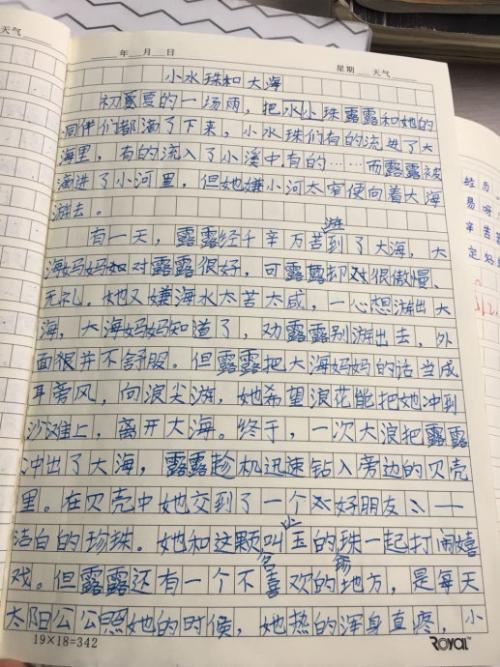 天气
年 月 日
星期 天气
小水珠和大海
初夏的一场雨，把水小珠露露和她的
同伴们都淌了下来，小水珠们有的流进了大
海里，有的流入了小溪中有的……而露露被
淌进了小河里，但她嫌小河太窄便向着大海
游去。
有一天，露露经千辛万苦游到了大海，大
海妈妈对露露很好，可露露却很傲慢、
无礼，她又嫌海水太苦太咸，一心想游出大
海，大海妈妈知道了，劝露露别游出去，外
面很并不舒服。但露露把大海妈妈的话当成
耳旁风，向浪尖游，她希望浪花能把她冲到
沙滩上，离开大海。终于，一次大浪把露露
冲出了大海，露露趁机迅速钻入旁边的贝壳
里。在贝壳中她交到了一个好朋友——
洁白的珍珠。她和这颗叫玉的珠一起打闹嬉
戏。但露露还有一个不喜欢的地方，是每天
太阳公公照她的时候，她热的浑身直疼，小
19×18=342
ROYAL